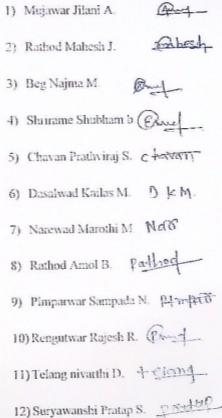 1) Mujawar Jilani A.
2) Rathod Mahesh J. Mahesh
3) Beg Najma M.
4) Shirame Shubham b
5) Chavan Prathviraj S. chavan
6) Dasalwad Kailas M. D K M.
7) Narewad Marothi M
8) Rathod Amol B. Rathod
9) Pimparwar Sampada N.
10) Rengutwar Rajesh R.
11) Telang nivarthi D. telang
12) Suryawanshi Pratap S.